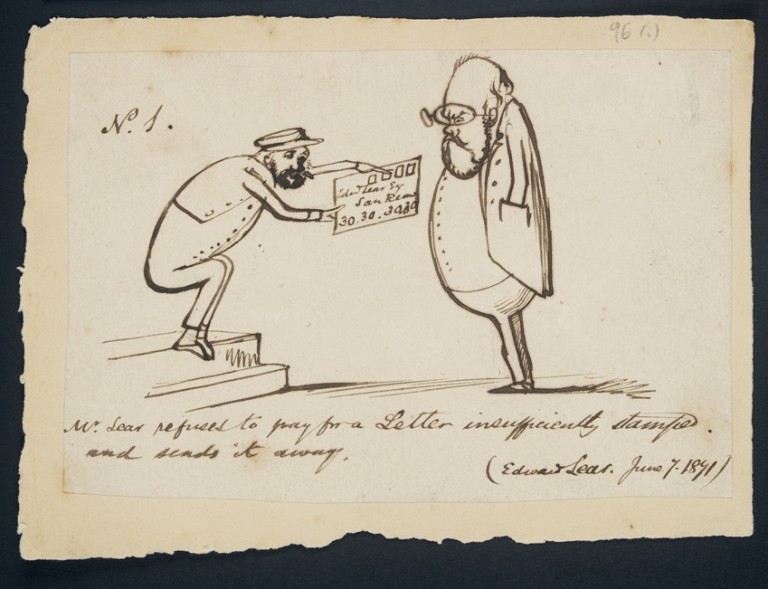 96 (i)
No. 1.
Edwd Lear Esq
San Remo
30. 30. 30.30
Mr. Lear refuses to pay for a Letter insufficiently stamped.
and sends it away.
(Edward Lear. June 7. 1871)